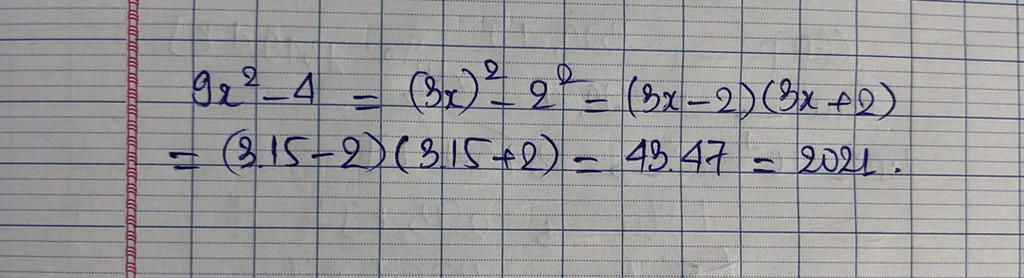 9x² - 4 = (3x)² - 2² = (3x - 2)(3x + 2)
= (3.15 - 2)(3.15 + 2) = 43.47 = 2021.